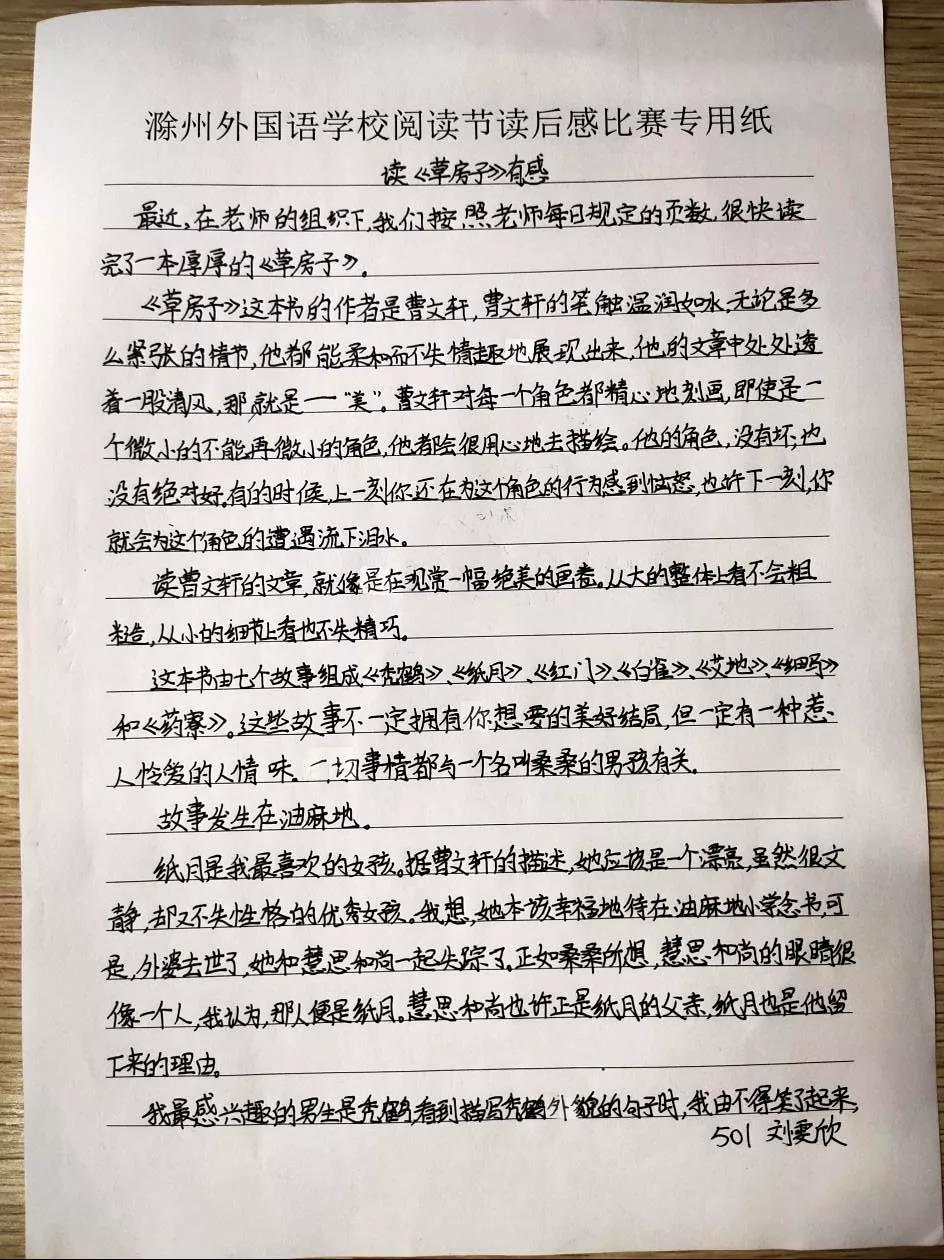 滁州外国语学校阅读节读后感比赛专用纸
读《草房子》有感
最近,在老师的组织下,我们按照老师每日规定的页数,很快读
完了一本厚厚的《草房子》。
《草房子》这本书的作者是曹文轩,曹文轩的笔触温润如水,无论是多
么紧张的情节,他都能柔和而不失情趣地展现出来,他的文章中处处透
着一股清风,那就是一“美”。曹文轩对每一个角色都精心地刻画,即使是一
个微小的不能再微小的角色,他都会很用心地去描绘。他的角色,没有坏,也
没有绝对好,有的时候,上一刻你还在为这个角色的行为感到恼怒,也许下一刻,你
就会为这个角色的遭遇流下泪水。
读曹文轩的文章,就像是在观赏一幅绝美的画卷。从大的整体上看不会粗
糙,从小的细节上看也不失精巧。
这本书由七个故事组成《秃鹤》、《纸月》、《红门》、《白雀》、《艾地》、《细马》
和《药寮》。这些故事不一定拥有你想要的美好结局,但一定有一种惹
人怜爱的人情味。一切事情都与一个名叫桑桑的男孩有关。
故事发生在油麻地。
纸月是我最喜欢的女孩。据曹文轩的描述,她应该是一个漂亮,虽然很文
静,却又不失性格的优秀女孩。我想,她本该幸福地待在油麻地小学念书,可
是,外婆去世了,她和慧思和尚一起失踪了。正如桑桑所想,慧思和尚的眼睛很
像一个人,我认为,那人便是纸月。慧思和尚也许正是纸月的父亲,纸月也是他留
下来的理由。
我最感兴趣的男生是秃鹤,看到描写秃鹤外貌的句子时,我由不得笑了起来,
501 刘雯欣